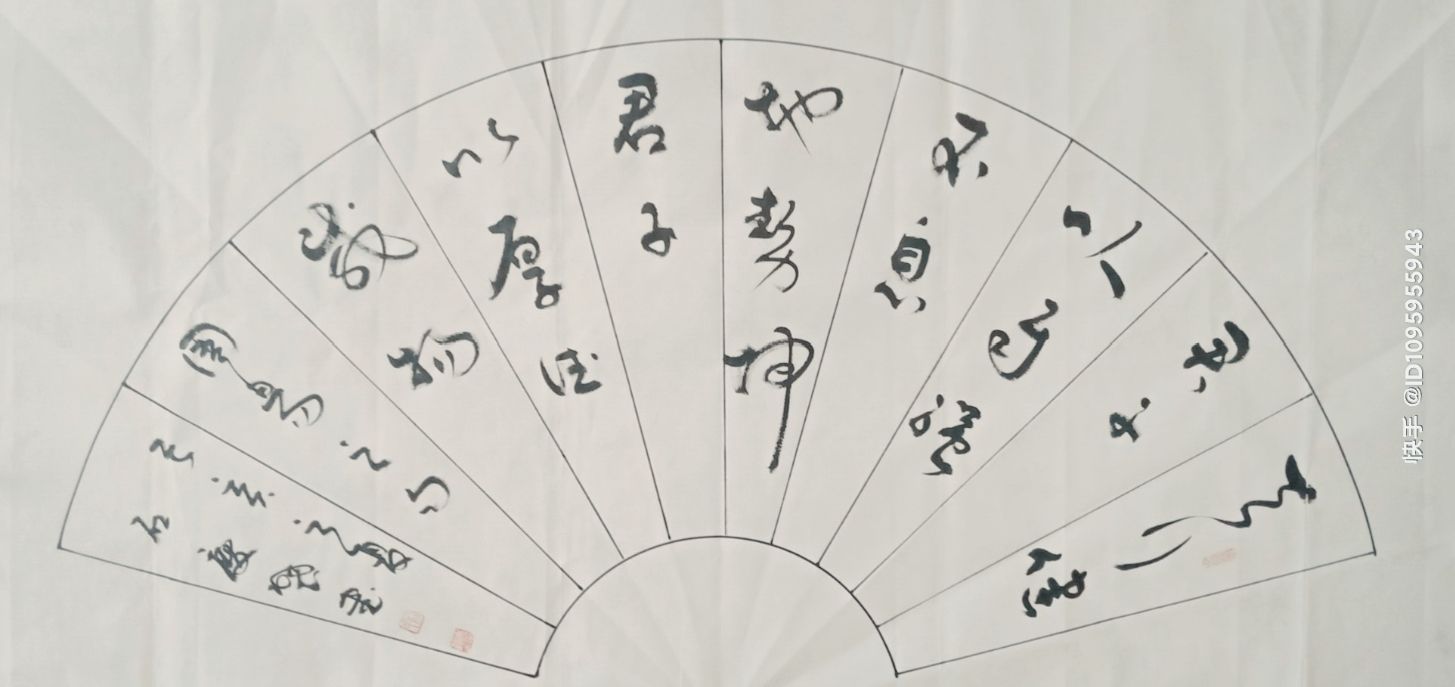 天行健
君子
以自强
不息
地势坤
君子
以厚德
载物
周易之句
石庆
快手 @ID1095955943